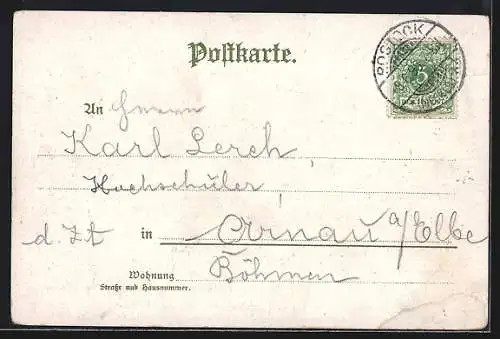 Postkarte.
ROSTOCK
5
An Herrn
Karl Lerch,
Hochschüler,
d. Zt in Arnau a/Elbe
Wohnung Böhmen
Straße und Hausnummer.